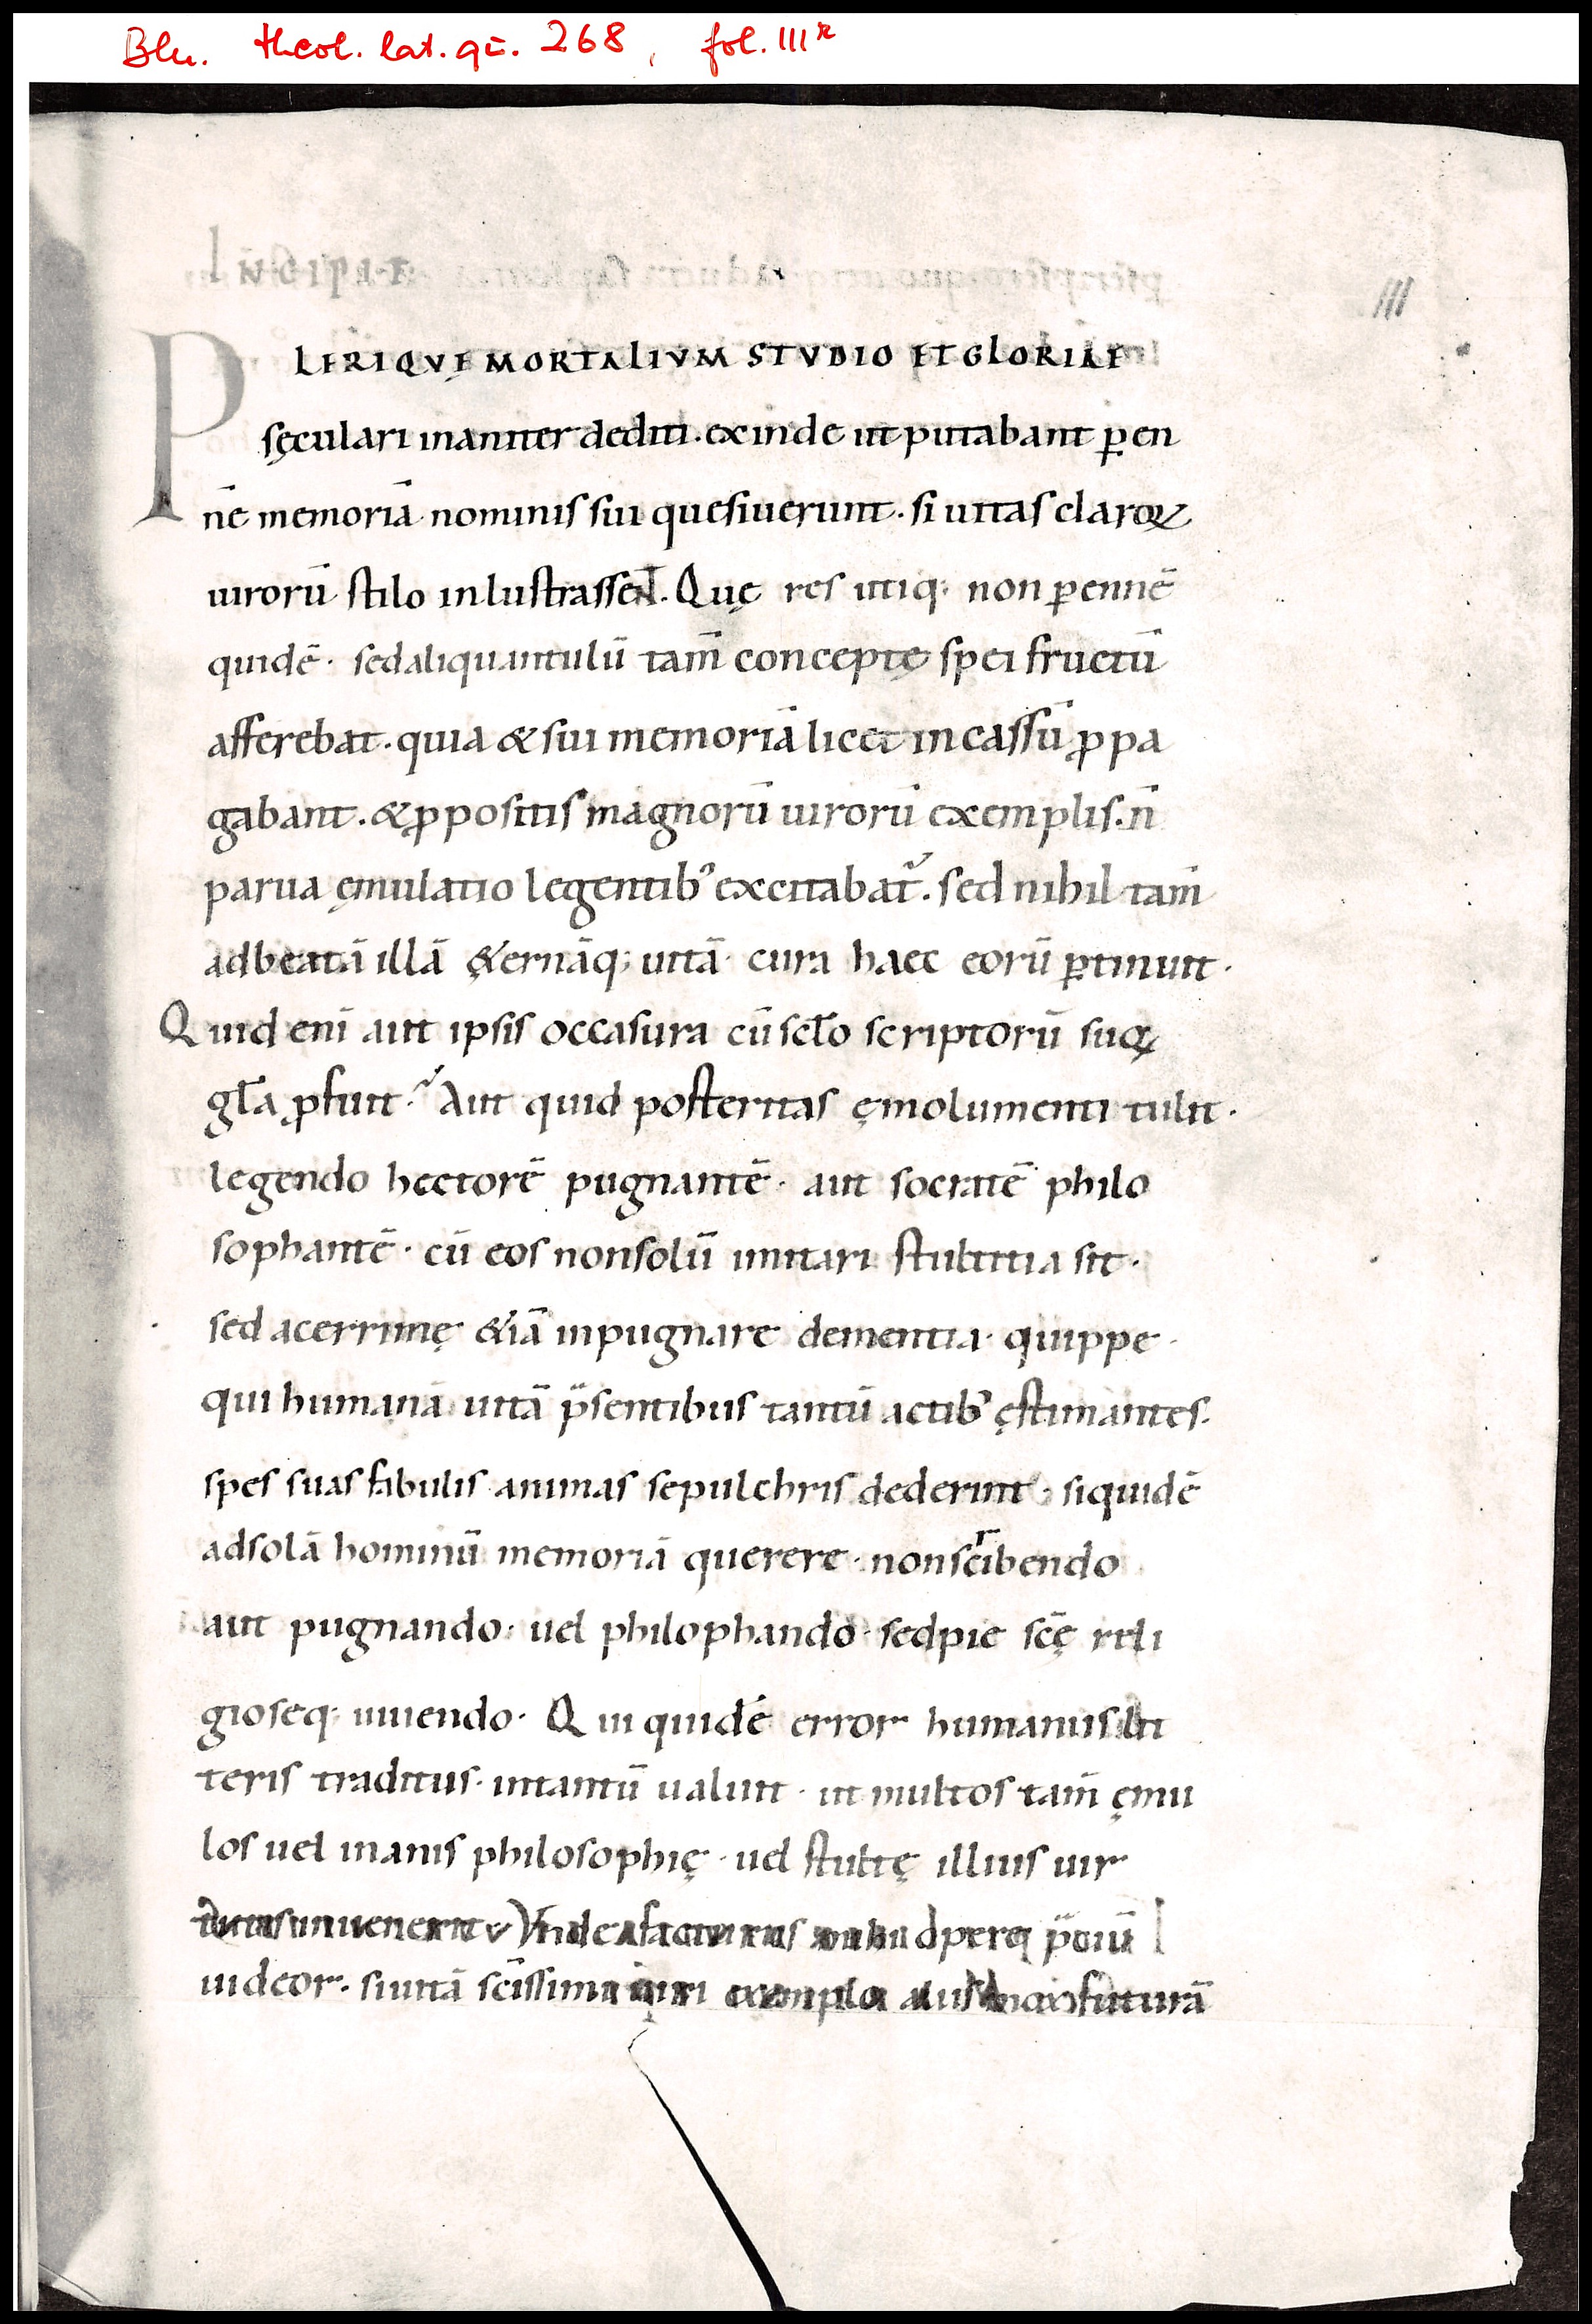 Bln. theol. lat. qu. 268, fol. IIIr
INCIPIT
III
PLERIQVE MORTALIVM STVDIO ET GLORIAE
sęculari inaniter dediti. exinde ut putabant p̱en
nē memoriā nominis sui quesiuerunt. si uitas claroꝝ
uirorū stilo inlustrassent. Quę res utiq; non p̱ennē
quidē. sed aliquantulū tam̄ conceptę spei fructū
afferebat. quia & sui memoriā licet incassū ꝓpa
gabant. & ꝓpositis magnorū uirorū exemplis. n̄
parua ęmulatio legentib᾿ excitabat᷑. sed nihil tam̄
ad beatā illā ę&ernāq; uitā cura haec eorū ꝑtinuit.
Quid eni̅ aut ipsis occasura cū sc̄lo scriptorū suoꝝ
gl̄a ꝓfuit? Aut quid posteritas ęmolumenti tulit.
legendo hectorē pugnantē. aut socratē philo
sophantē. cū eos non solū imitari stultitia sit.
sed acerrimę &iā inpugnare dementia. quippe.
qui humanā uitā p̄sentibus tantū actib᾿ ęstimantes.
spes suas fabulis animas sepulchris dederint. siquidē
ad solā hominū memoriā querere. non sc̄ibendo
aut pugnando. uel philophando. sed pie sc̄ę reli
gioseq; uiuendo. Qui quidē error humanus lit
teris traditus. intantū ualuit. ut multos tam̄ ęmu
los uel inanis philosophię. uel stultę illius uir
tutis inuenerit. Vnde facturus mihi operę p̄ciū
uideor. si uitā sc̄issimi uiri exemplo aliis mox futurā